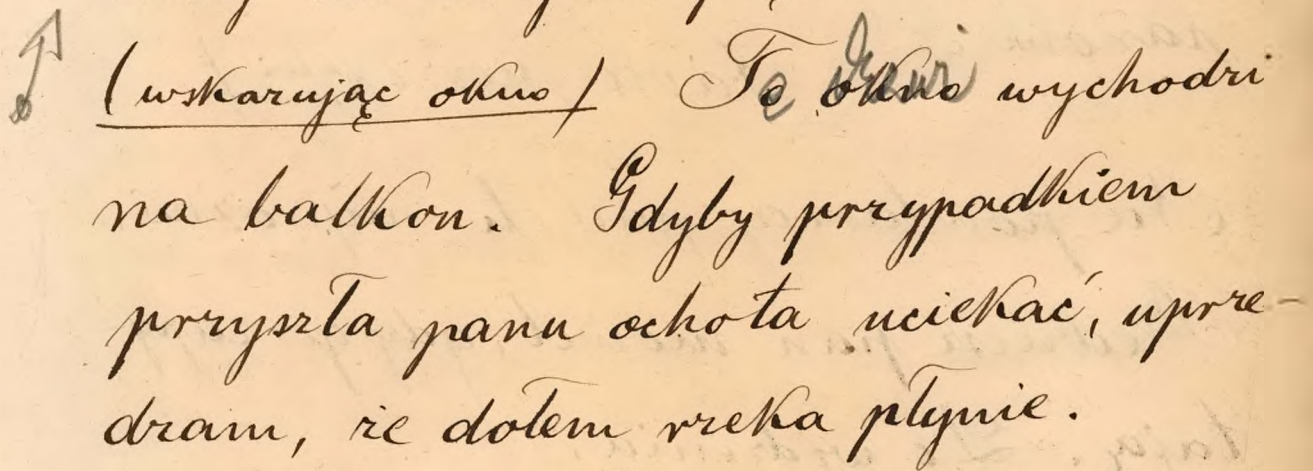 (wskazując okno) To okno wychodzi
na balkon. Gdyby przypadkiem
przyszła panu ochota uciekać, uprze-
dzam, że dołem rzeka płynie.